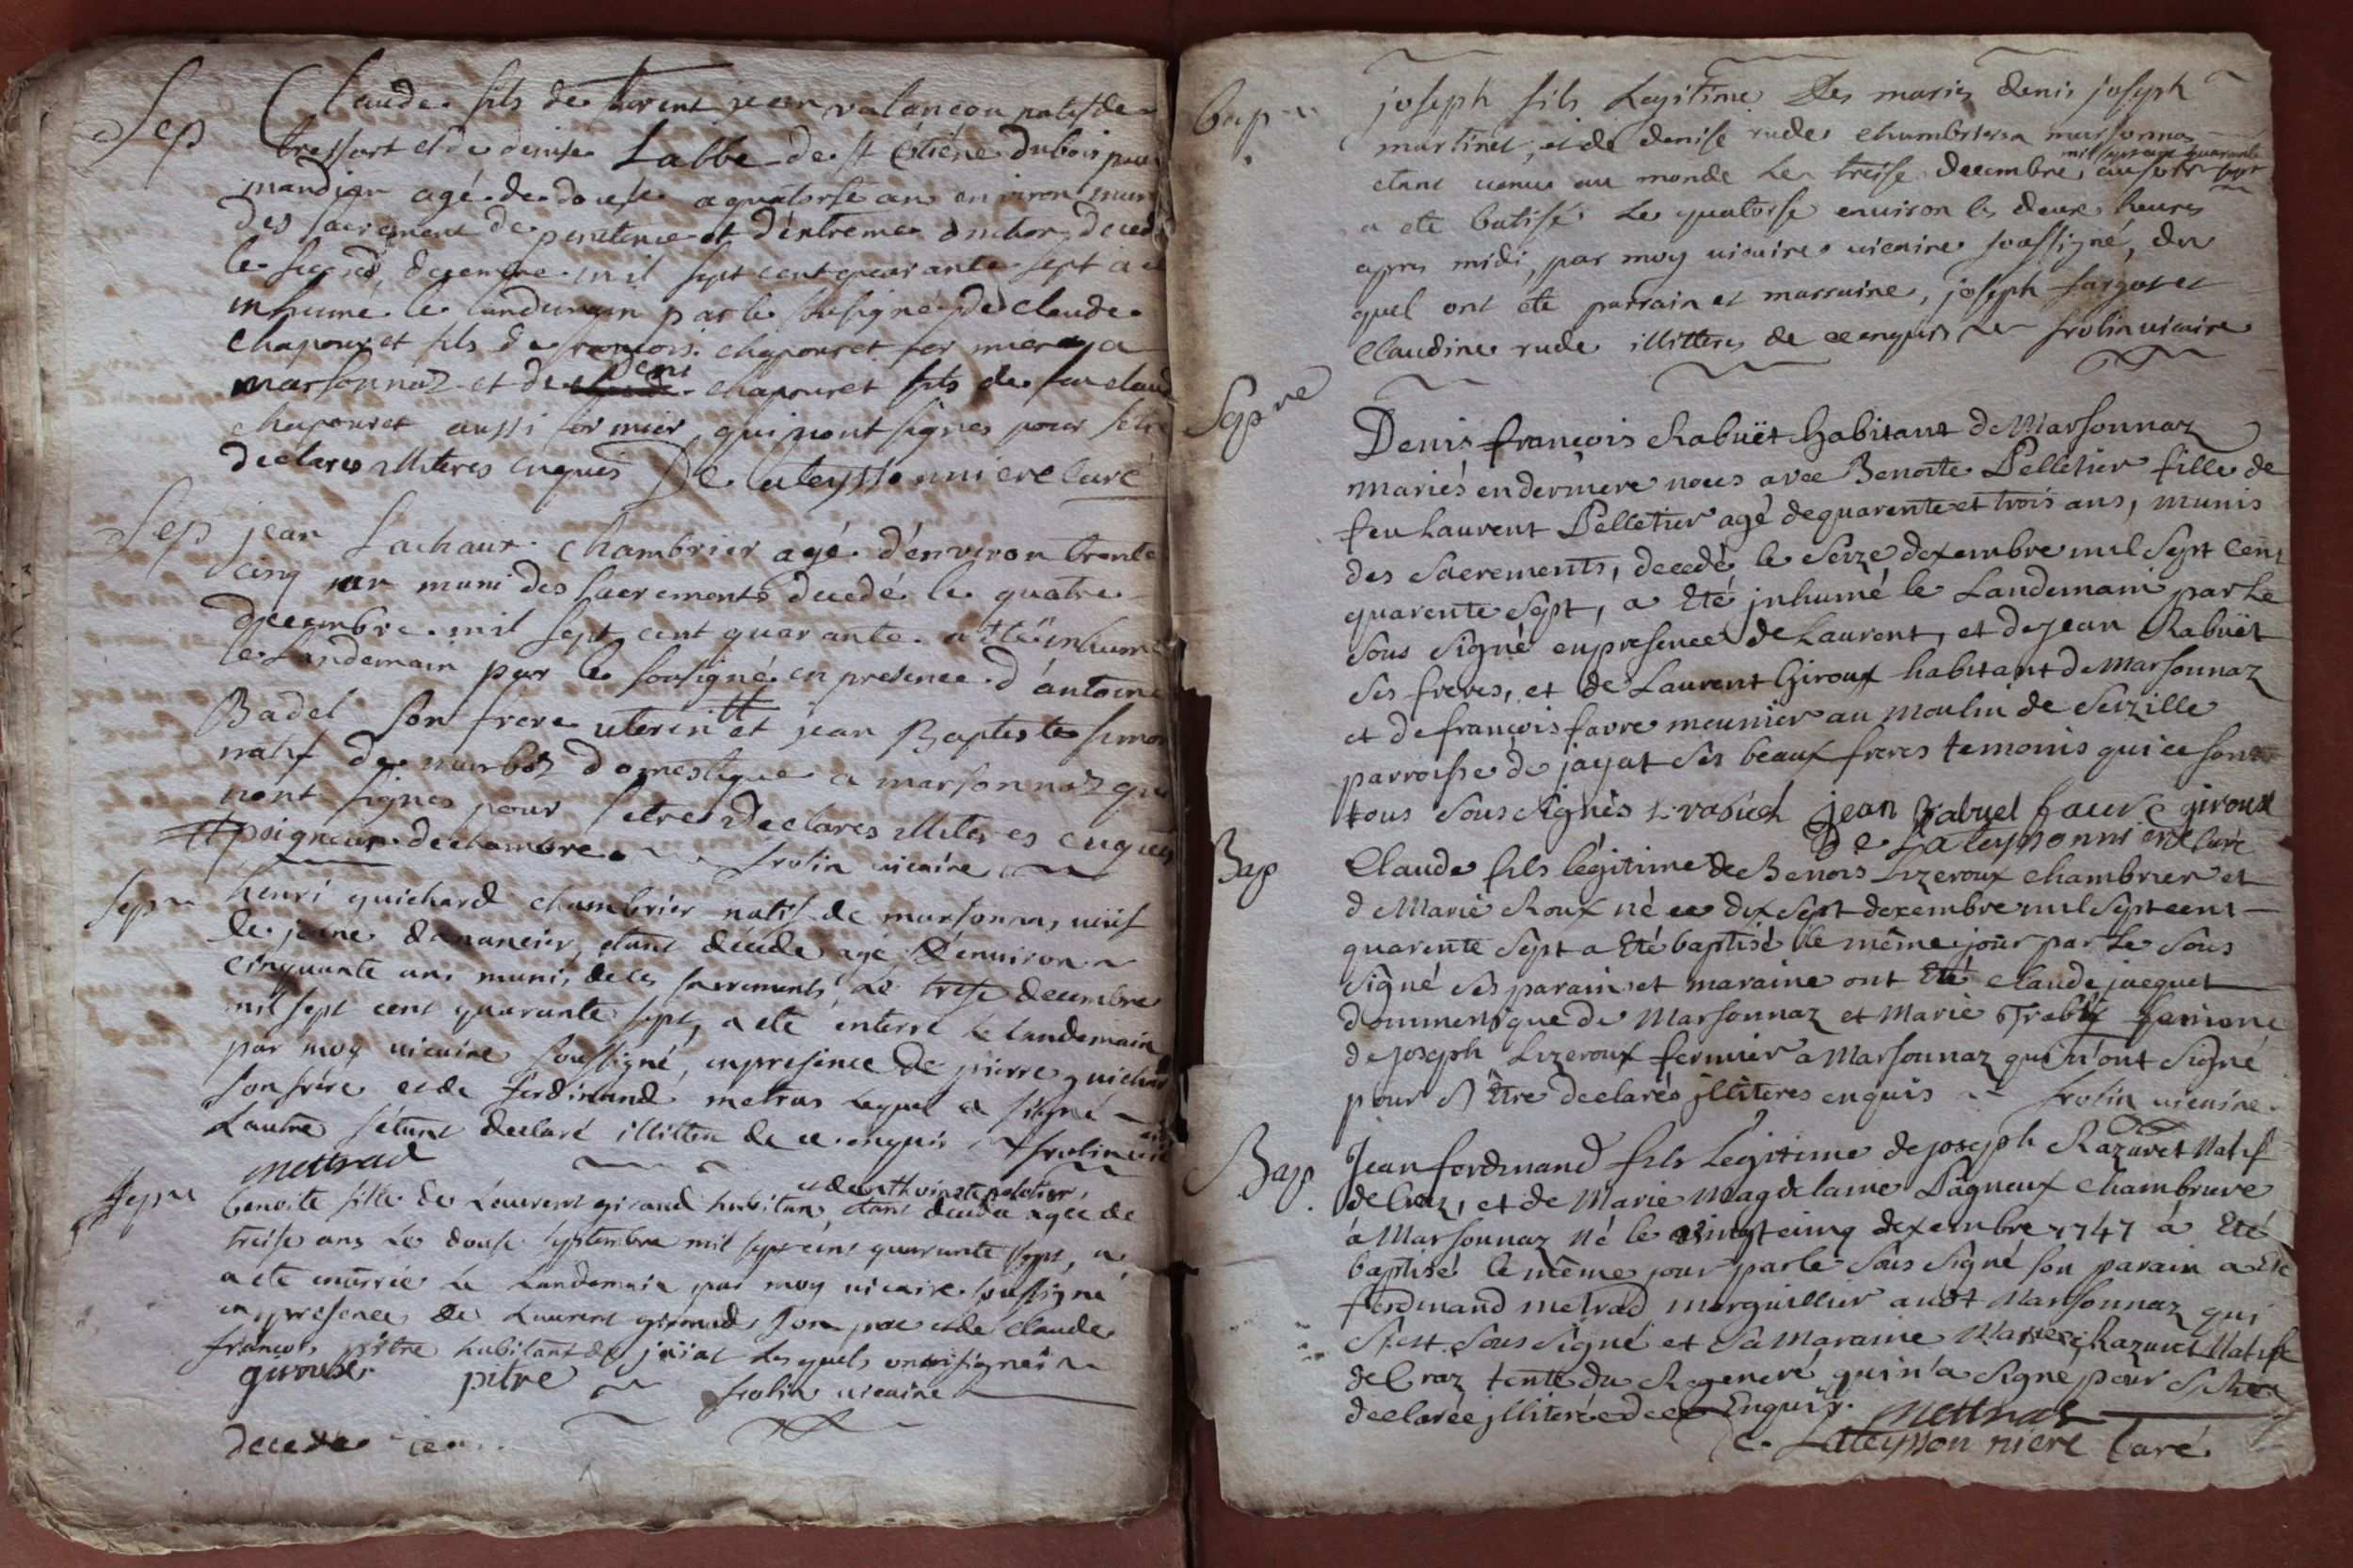 Sep Claude fils de florent jean valançon natif de
tressort et de denise Labbe de st Etiéne dubois pau
mandian agé de douse a quatorse ans environ muni
des sacrement de penitence et d'éxtreme onction decedé
le second decembre mil sept cent quarante sept a été
inhumé le landemain par le sousigné de claude
chapouret fils de francois chapouret fermier a
marsonnaz et de deni chapouret fils de feu claud
chapouret aussi fermier qui nont signes pour setre
declares illiteres enquis De Lateyssonniere Curé
Sep jean Lachaux chambrier agé d'environ trente
cinq ans muni des sacrements decedé le quatre
decembre mil sept cent quarante a été inhumé
le landemain par le sousigné en presence d'antoine
Badel son frere uterin et jean Baptiste simon
natif de marboz domestique a marsonnaz qui
nont signes pour setre declares illiteres enquis
peigneur de chambre frolin vicaire
Sepre henri guichard chambrier natif de marsonna, veuf
de jeane damancier, etant décédé agé d'environ
cinquante ans muni de ces sacrements le trese decembre
mil sept cent quarante sept, a eté enterré le landemain
par moy vicaire soussigné, en presence de pierre guichar
son frére et de ferdinand metras lequel a signé
Lautre s'étant declaré illitere de ce enquis frolin vic
mettrad
et de anthoinete peletier,
Sepre benoite fille de Laurent giroud habitan, etant décédée agée de
treise ans le douse septembre mil sept cent quarante sept, a
a eté enterrée le landemain par moy vicaire soussigné
en presence de Laurent giroud son pere et de claude
francois pitre habitant de jaiat lesquels ont signés
giroux pitre frolin vicaire
decede
bap joseph fils Legitime Des mariés denis joseph
martinet, et de denise rude chambriers a marsonna
mil sept cent quarante sept
etant venu au monde le treise decembre, au soir
a eté batisé le quatorse environ les deux heures
apres midi, par moy vicaire vicaire soussigné, du
quel ont eté parrain et marraine, joseph fargot et
Claudine rude illitteres de ce enquis frolin vicaire
Sepre Denis françois Rabuët habitant de Marsonnaz
mariés en derniere noces avec Benoite Pelletier fille de
feu Laurent Pelletier agé de quarente et trois ans, munis
des Sacrements, decedé le Seize dexembre mil Sept cent
quarente Sept, a Eté jnhumé le Landemain par Le
Sous Signé en presence de Laurent, et de jean Rabuët
Ses freres, et de Laurent Giroux habitant de Marsonnaz
et de françois favre meunier au moulin de Serzille
parroisse de jayat Ses beaux freres temoins qui ce sont
tous Sous Signés L rabuel jean Rabuel faure giroux
De Lateyssonniere Curé
Bap Claude fils légitime de Benois Lizeroux chambrier et
de Marie Roux né ce dix Sept dexembre mil Sept cent
quarente Sept a Eté baptisé le même jour par Le Sous
Signé Ses parain et maraine ont Eté claude jacquet
dommestique de Marsonnaz et Marie Trably femme
de joseph Lizeroux fermier a Marsonnaz qui n'ont Signé
pour S'Etre declarés jlliteres enquis frolin vicaire
Bap. Jean ferdinand fils Legitime de joseph Razuret Natif
de Craz, et de Marie Magdelaine Pagneux chambriere
à Marsonnaz né le vingt cinq dexembre 1747 à Eté
baptisé le même jour par le Sous Signé Son parain a Eté
ferdinand metrad marguillier audt Marsonnaz qui
S'est Sous Signé et Sa Maraine Marie Razuret Native
de Craz tente du Regeneré qui n'a Signé pour S'Etre
declarée jlliterée de ce Enquis. mettrad
De Lateyssonniere Curé